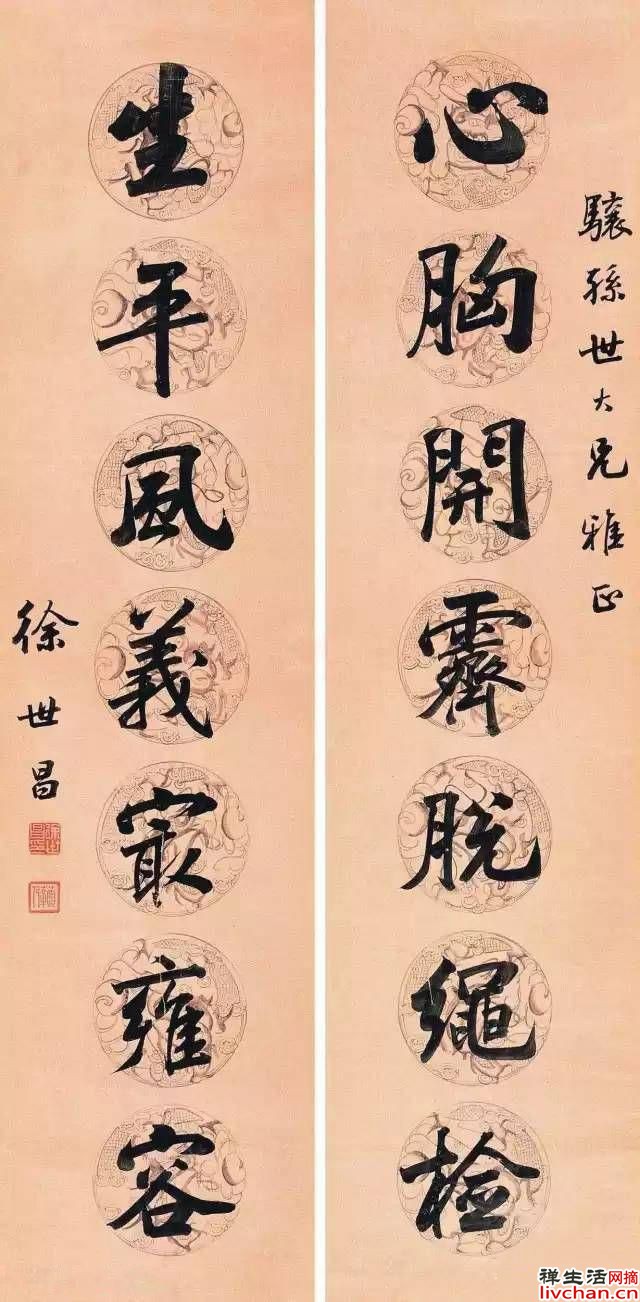 驤孫世大兄雅正
心胸開霽脫繩檢
生平風義寂雍容
徐世昌
禅生活网摘
livchan.cn